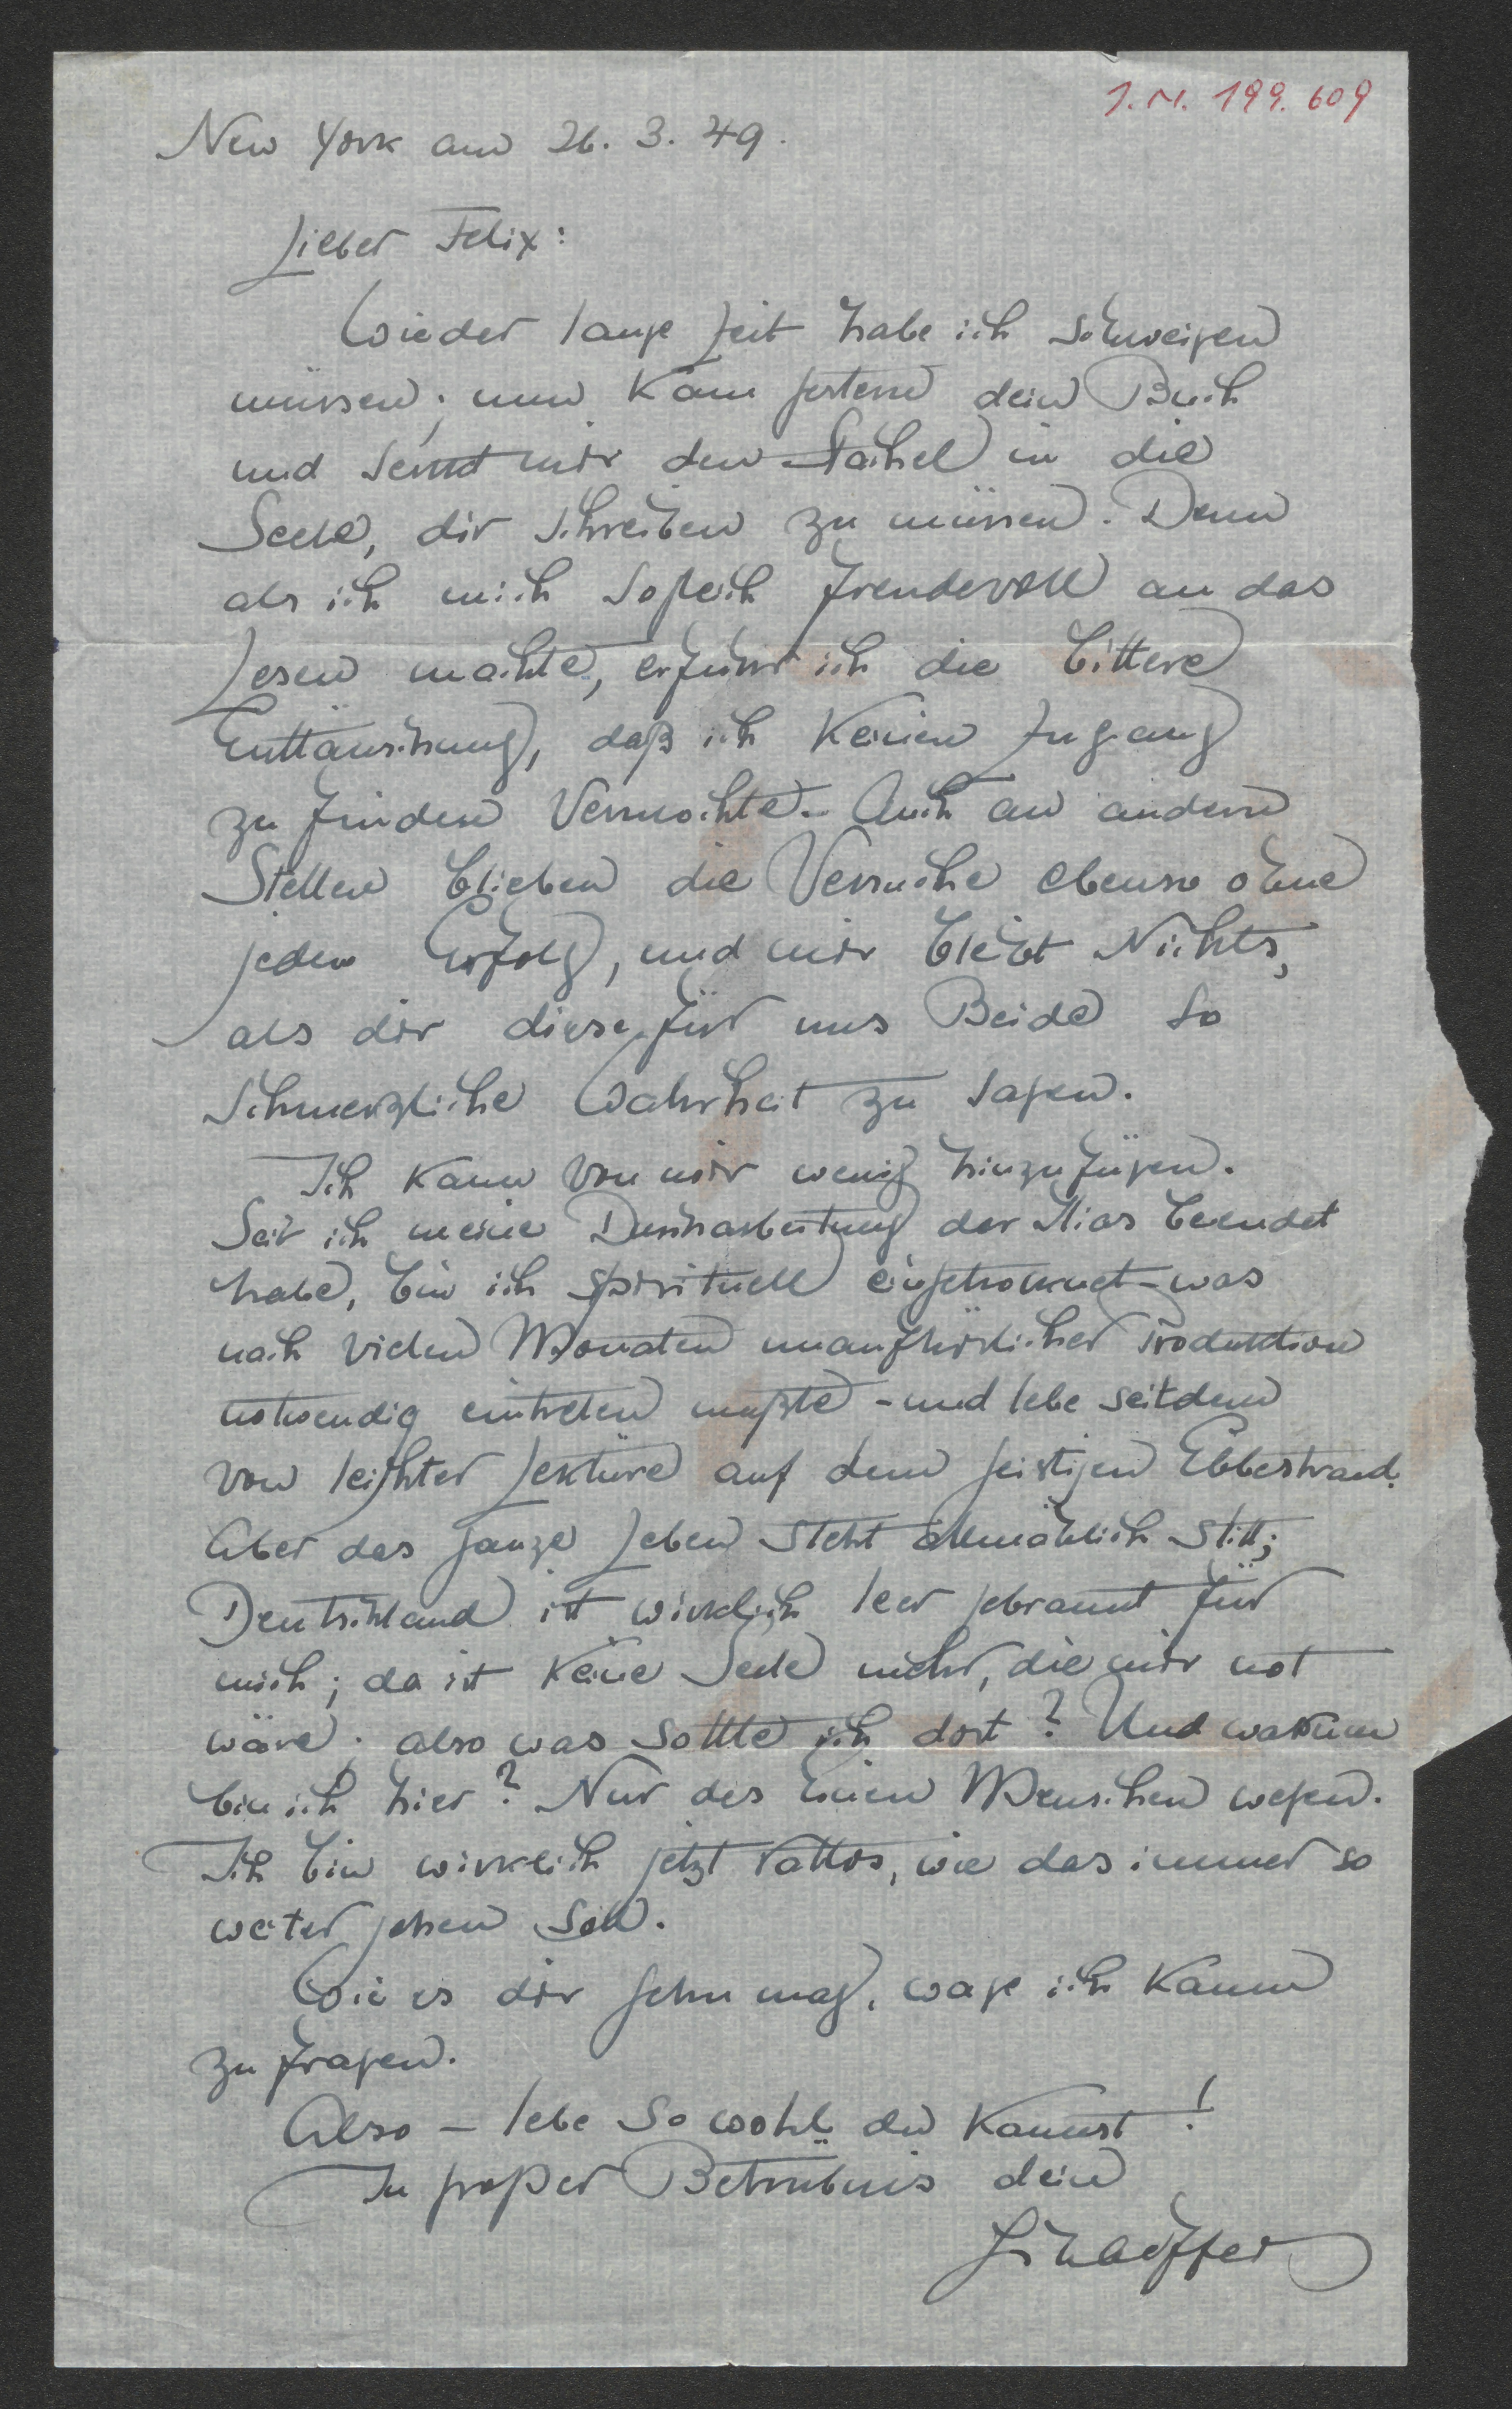 J.N. 199.609
New York am 26. 3. 49.
Lieber Felix:
Wieder lange Zeit habe ich schweigen
müssen; nun kam gestern dein Buch
und senkt mir den Stachel in die
Seele, dir schreiben zu müssen. Denn
als ich mich sogleich freudevoll an das
Lesen machte, erfuhr ich die bittere
Enttäuschung, daß ich keinen Zugang
zu finden vermochte. Auch an andern
Stellen blieben die Versuche ebenso ohne
jeden Erfolg, und mir bleibt Nichts,
als dir diese für uns Beide so
schmerzliche Wahrheit zu sagen.
Ich kann von mir wenig hinzufügen.
Seit ich meine Durcharbeitung der Ilias beendet
habe, bin ich spirituell eingetrocknet – was
nach vielen Monaten unaufhörlicher Produktion
notwendig eintreten mußte – und lebe seitdem
von leichter Lektüre auf dem geistigen Ebbestrand.
Aber das ganze Leben steht allmählich still;
Deutschland ist wirklich leer gebrannt für
mich; da ist keine Seele mehr, die mir not
wäre; also was sollte ich dort? Und warum
bin ich hier? Nur des einen Menschen wegen.
Ich bin wirklich jetzt ratlos, wie das immer so
weiter gehen soll.
Wie es dir gehn mag, wage ich kaum
zu fragen.
Also – lebe so wohl du kannst!
In großer Betrübnis dein
Schaeffer